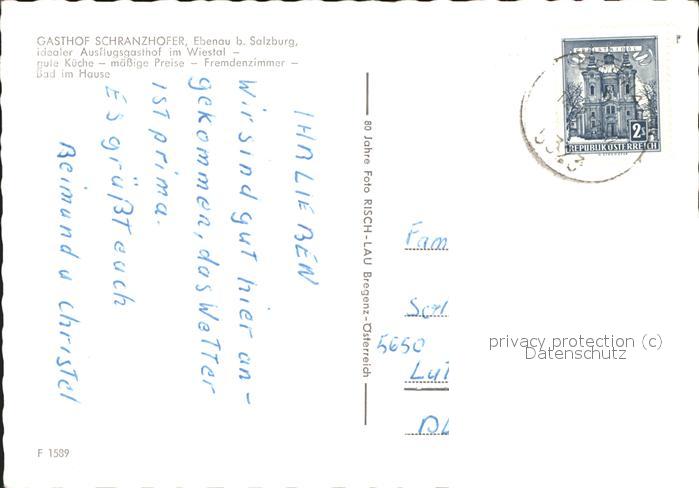 GASTHOF SCHRANZHOFER, Ebenau b. Salzburg,
idealer Ausflugsgasthof im Wiestal –
gute Küche – mäßige Preise – Fremdenzimmer –
Bad im Hause
IHR LIEBEN
Wir sind gut hier an-
gekommen, das Wetter
ist prima.
Es grüßt euch
Reimund u Christel
80 Jahre Foto RISCH-LAU Bregenz-Österreich
2S
REPUBLIK ÖSTERREICH
Fam
5650
privacy protection (c)
Datenschutz
F 1589